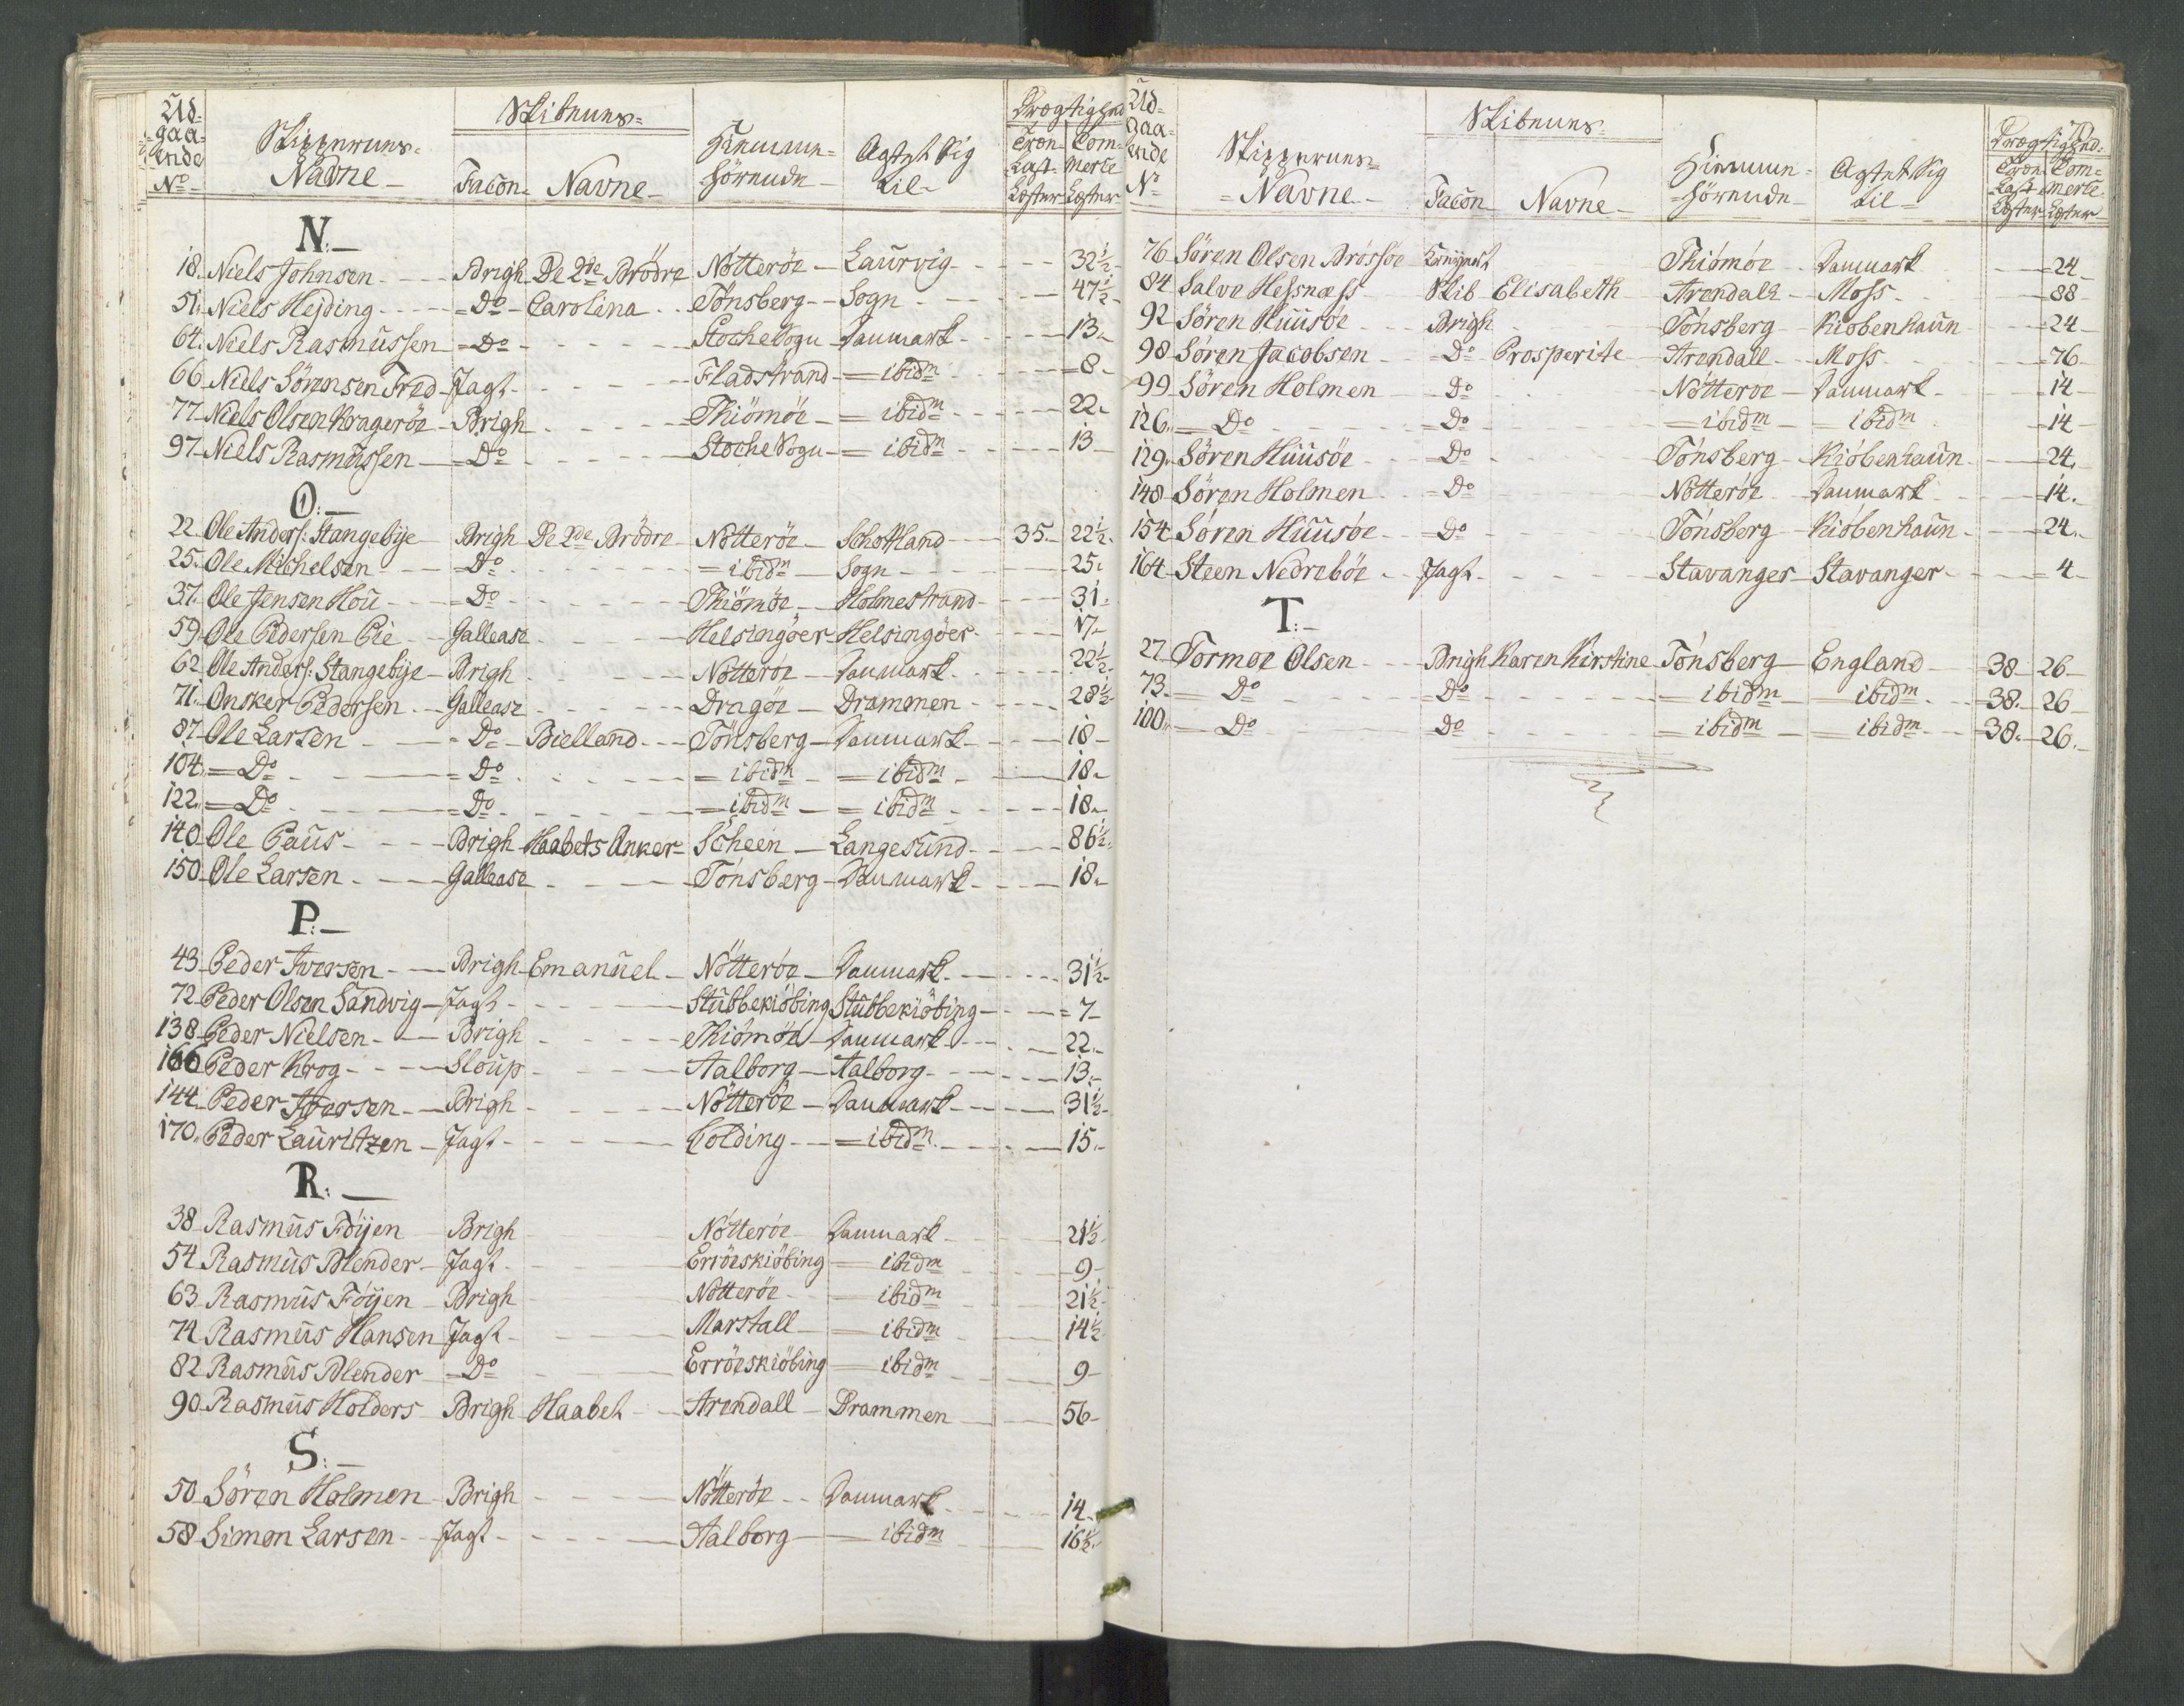 Ud-
gaa-
ende
No
Skippernes
Navne
Skibenes
Facon Navne
Hiemme-
hörende
Agtet sig
til
Drægtighed
Træ-
Last-
Læster
Com-
merce
Læster
N.
18. Niels Johnsen Brigh De 2de Brödre Nötteröe Laurvig 32½
51. Niels Hejding Do Carolina Tönsberg Sogn 47½
64. Niels Rasmussen Do Stoche Sogn Danmark 13
66 Niels Sörensen Fred Jagt Fladstrand ibidm 8
77 Niels Olsen Krageröe Brigh Thiömöe ibidm 22
97 Niels Rasmussen Do Stoche Sogn ibidm 13
O.
22 Ole Anders: Stangebye Brigh De 2de Brödre Nötteröe Schottland 35 22½
25. Ole Michelsen Do ibidm Sogn 25
37. Ole Jensen Hou Do Thiömöe Holmestrand 31
59 Ole Pedersen Pie Gallease Helsingöer Helsingöer 17
62 Ole Anders: Stangebye Brigh Nötteröe Danmark 22½
71. Onsker Pedersen Gallease Dragöe Drammen 28½
87 Ole Larsen Do Bielland Tönsberg Danmark 18
104. Do Do ibidm ibidm 18
122. Do Do ibidm ibidm 18
140 Ole Paus Brigh Haabets Anker Scheen Langesund 86½
150 Ole Larsen Gallease Tönsberg Danmark 18
P.
43 Peder Iversen Brigh Emanuel Nötteröe Danmark 31½
72 Peder Olsen Sandvig Jagt Stubbekiöbing Stubbekiöbing 7
138 Peder Nielsen Brigh Thiömöe Danmark 22
166 Peder Krog Sloup Aalborg Aalborg 13
144 Peder Iversen Brigh Nötteröe Danmark 31½
170. Peder Lauritzen Jagt Colding ibidm 15
R.
38 Rasmus Föyen Brigh Nötteröe Danmark 21½
54 Rasmus Blender Jagt Erröeskiöbing ibidm 9
63 Rasmus Föyen Brigh Nötteröe ibidm 21½
74 Rasmus Hansen Jagt Marstall ibidm 14½
82 Rasmus Blender Do Erröeskiöbing ibidm 9
90 Rasmus Holders Brigh Haabet Arendall Drammen 56
S.
50 Sören Holmen Brigh Nötteröe Danmark 14
58 Simon Larsen Jagt Aalborg ibidm 16½
Ud-
gaa-
ende
No
Skippernes
Navne
Skibenes
Facon Navne
Hiemme-
hörende
Agtet sig
til
70
Drægtighed
Træ-
Last-
Læster
Com-
merce
Læster
76 Sören Olsen Brössöe Thiömöe Danmark 24
84 Salve Hessnæss Skib Elisabeth Arendall Moss 88
92 Sören Huusöe Brigh Tönsberg Kiöbenhaun 24
98 Sören Jacobsen Do Prosperite Arendall Moss 76
99 Sören Holmen Do Nötteröe Danmark 14
126. Do Do ibidm ibidm 14
129. Sören Huusöe Do Tönsberg Kiöbenhaun 24
148 Sören Holmen Do Nötteröe Danmark 14
154 Sören Huusöe Do Tönsberg Kiöbenhaun 24
164 Steen Nedreböe Jagt Stavanger Stavanger 4
T.
27 Tormoe Olsen Brigh Karen Kirstine Tönsberg England 38 26
73. Do Do ibidm ibidm 38 26
100. Do Do ibidm ibidm 38 26